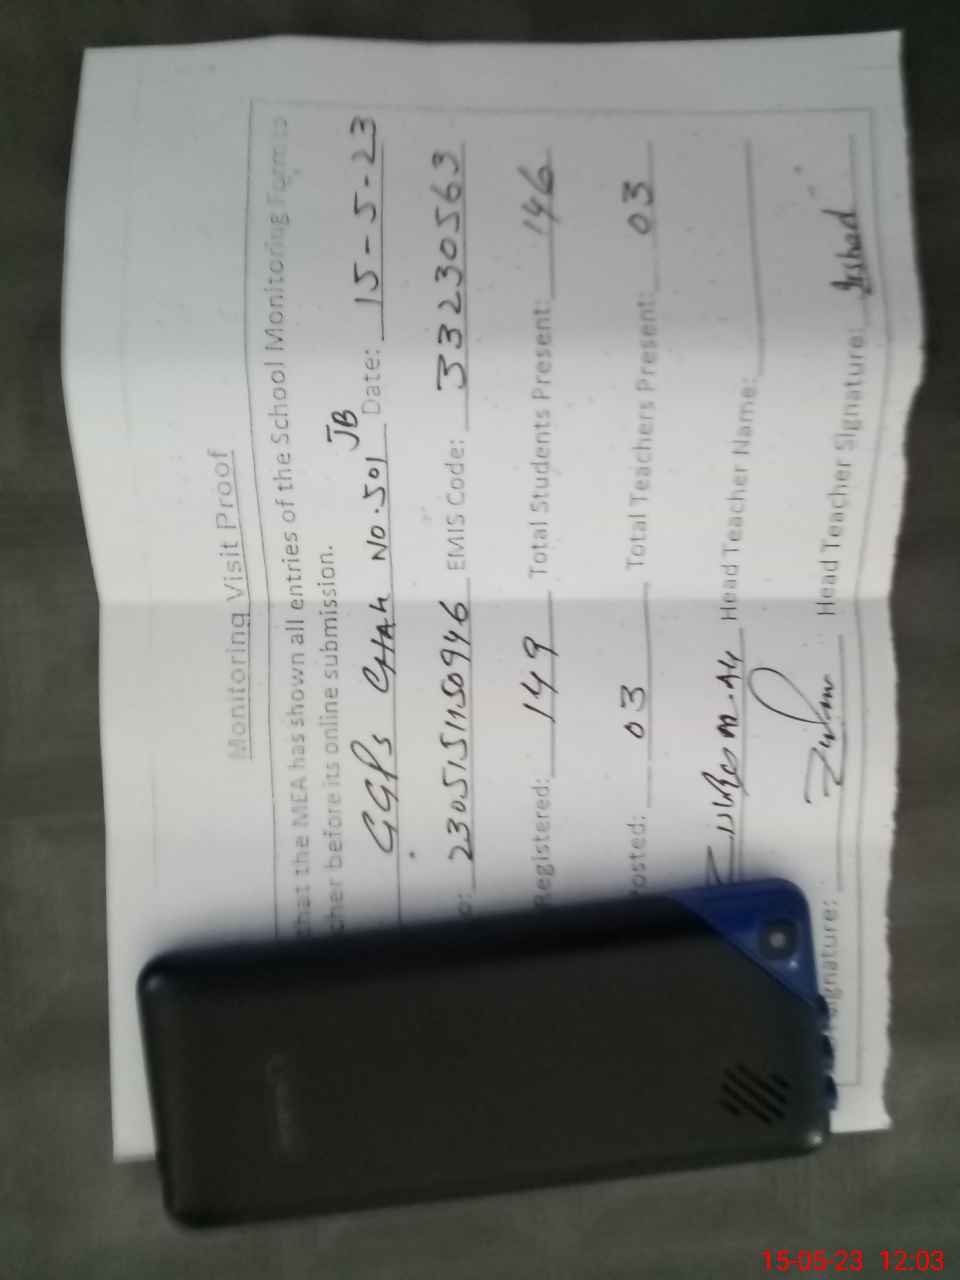 Monitoring Visit Proof
that the MEA has shown all entries of the School Monitoring Form to
cher before its online submission.
GGPS CHAK NO.501 JB Date: 15-5-23
o: 23051511150946 EMIS Code: 33230563
Registered: 149 Total Students Present: 146
osted: 03 Total Teachers Present: 03
Head Teacher Name:
ignature: Head Teacher Signature: Irshad
15-05-23 12:03